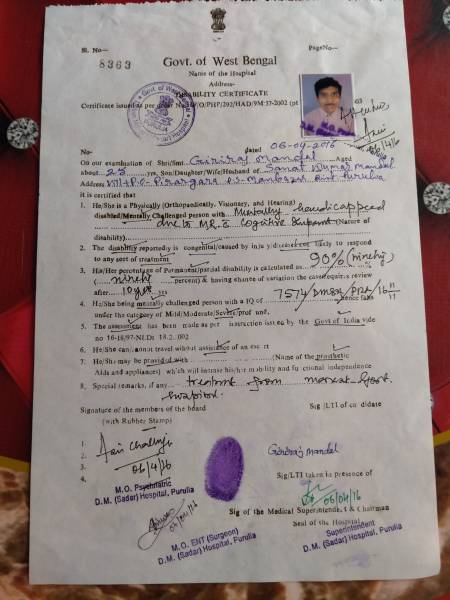 Sl. No—
PageNo—
8363
Govt. of West Bengal
Name of the Hospital
Address-
DISABILITY CERTIFICATE
Certificate issued as per order No /O/PHP/292/HAD/9M-37-2002 (pt
No- dated 06-04-2016
06/4/16
On our examination of Shri/Smt. Giriraj Mandal Aged
about 25 yrs, Son/Daughter/Wife/Husband of Sanat Kumar Mandal
Address Vill+P.O- P.S- Manbazar Dist Purulia
It is certified that
1. He/She is a Physically (Orthopaedically, Visionary, and Hearing)
disabled/Mentally Challenged person with Mentally handicapped
due to MR & (Nature of
disability).
2. The disability reportedly is congenital/caused by injury/disease not likely to respond
to any sort of treatment
3. His/Her percentage of Permanent/partial disability is calculated as 90% (ninety)
( ninety percent) & having chance of variation the case requires review
after 10 yrs
4. He/She being mentally challenged person with a IQ of hence falls
7574/DMSH/PRA/16
under the category of Mild/Moderate/Severe/profound,
5. The assessment has been made as per instruction issued by the Govt of India vide
no 16-18/97-NI.Dt 18.2.002
6. He/She can/cannot travel without assistance of an escort
7. He/She may be provided with (Name of the prosthetic
Aids and appliances) which will increase his/her mobility and functional independence
8. Special remarks, if any treatment from Govt.
Signature of the members of the board
(with Rubber Stamp)
Sig /LTI of candidate
1.
2.
3.
4.
06/4/16
Giriraj Mandal
M.O. Psychiatric
D.M. (Sadar) Hospital, Purulia
Sig/LTI taken in presence of
06/04/16
Sig of the Medical Superintendent & Chairman
Seal of the Hospital
Superintendent
D.M. (Sadar) Hospital, Purulia
06/04/16
M.O. ENT (Surgeon)
D.M. (Sadar) Hospital, Purulia